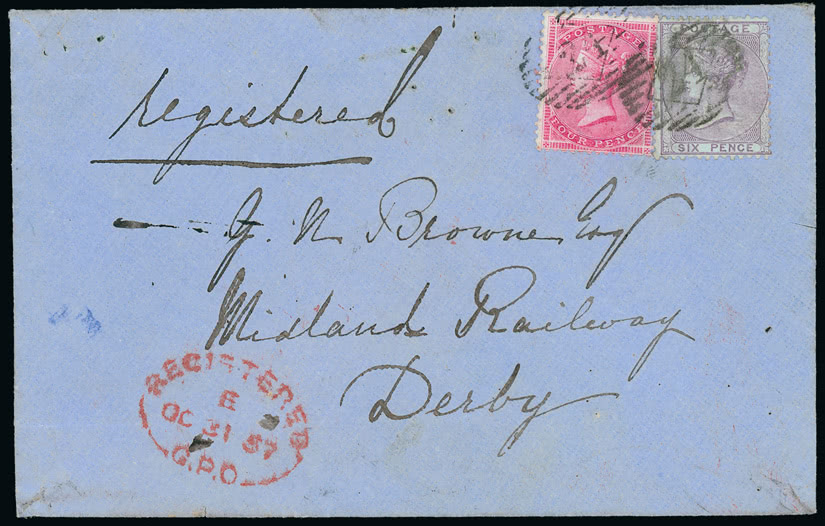 registered
POSTAGE
FOUR PENCE
POSTAGE
SIX PENCE
J. N. Browne Esq
Midland Railway
Derby
REGISTERED
E
OC 31 57
G.P.O